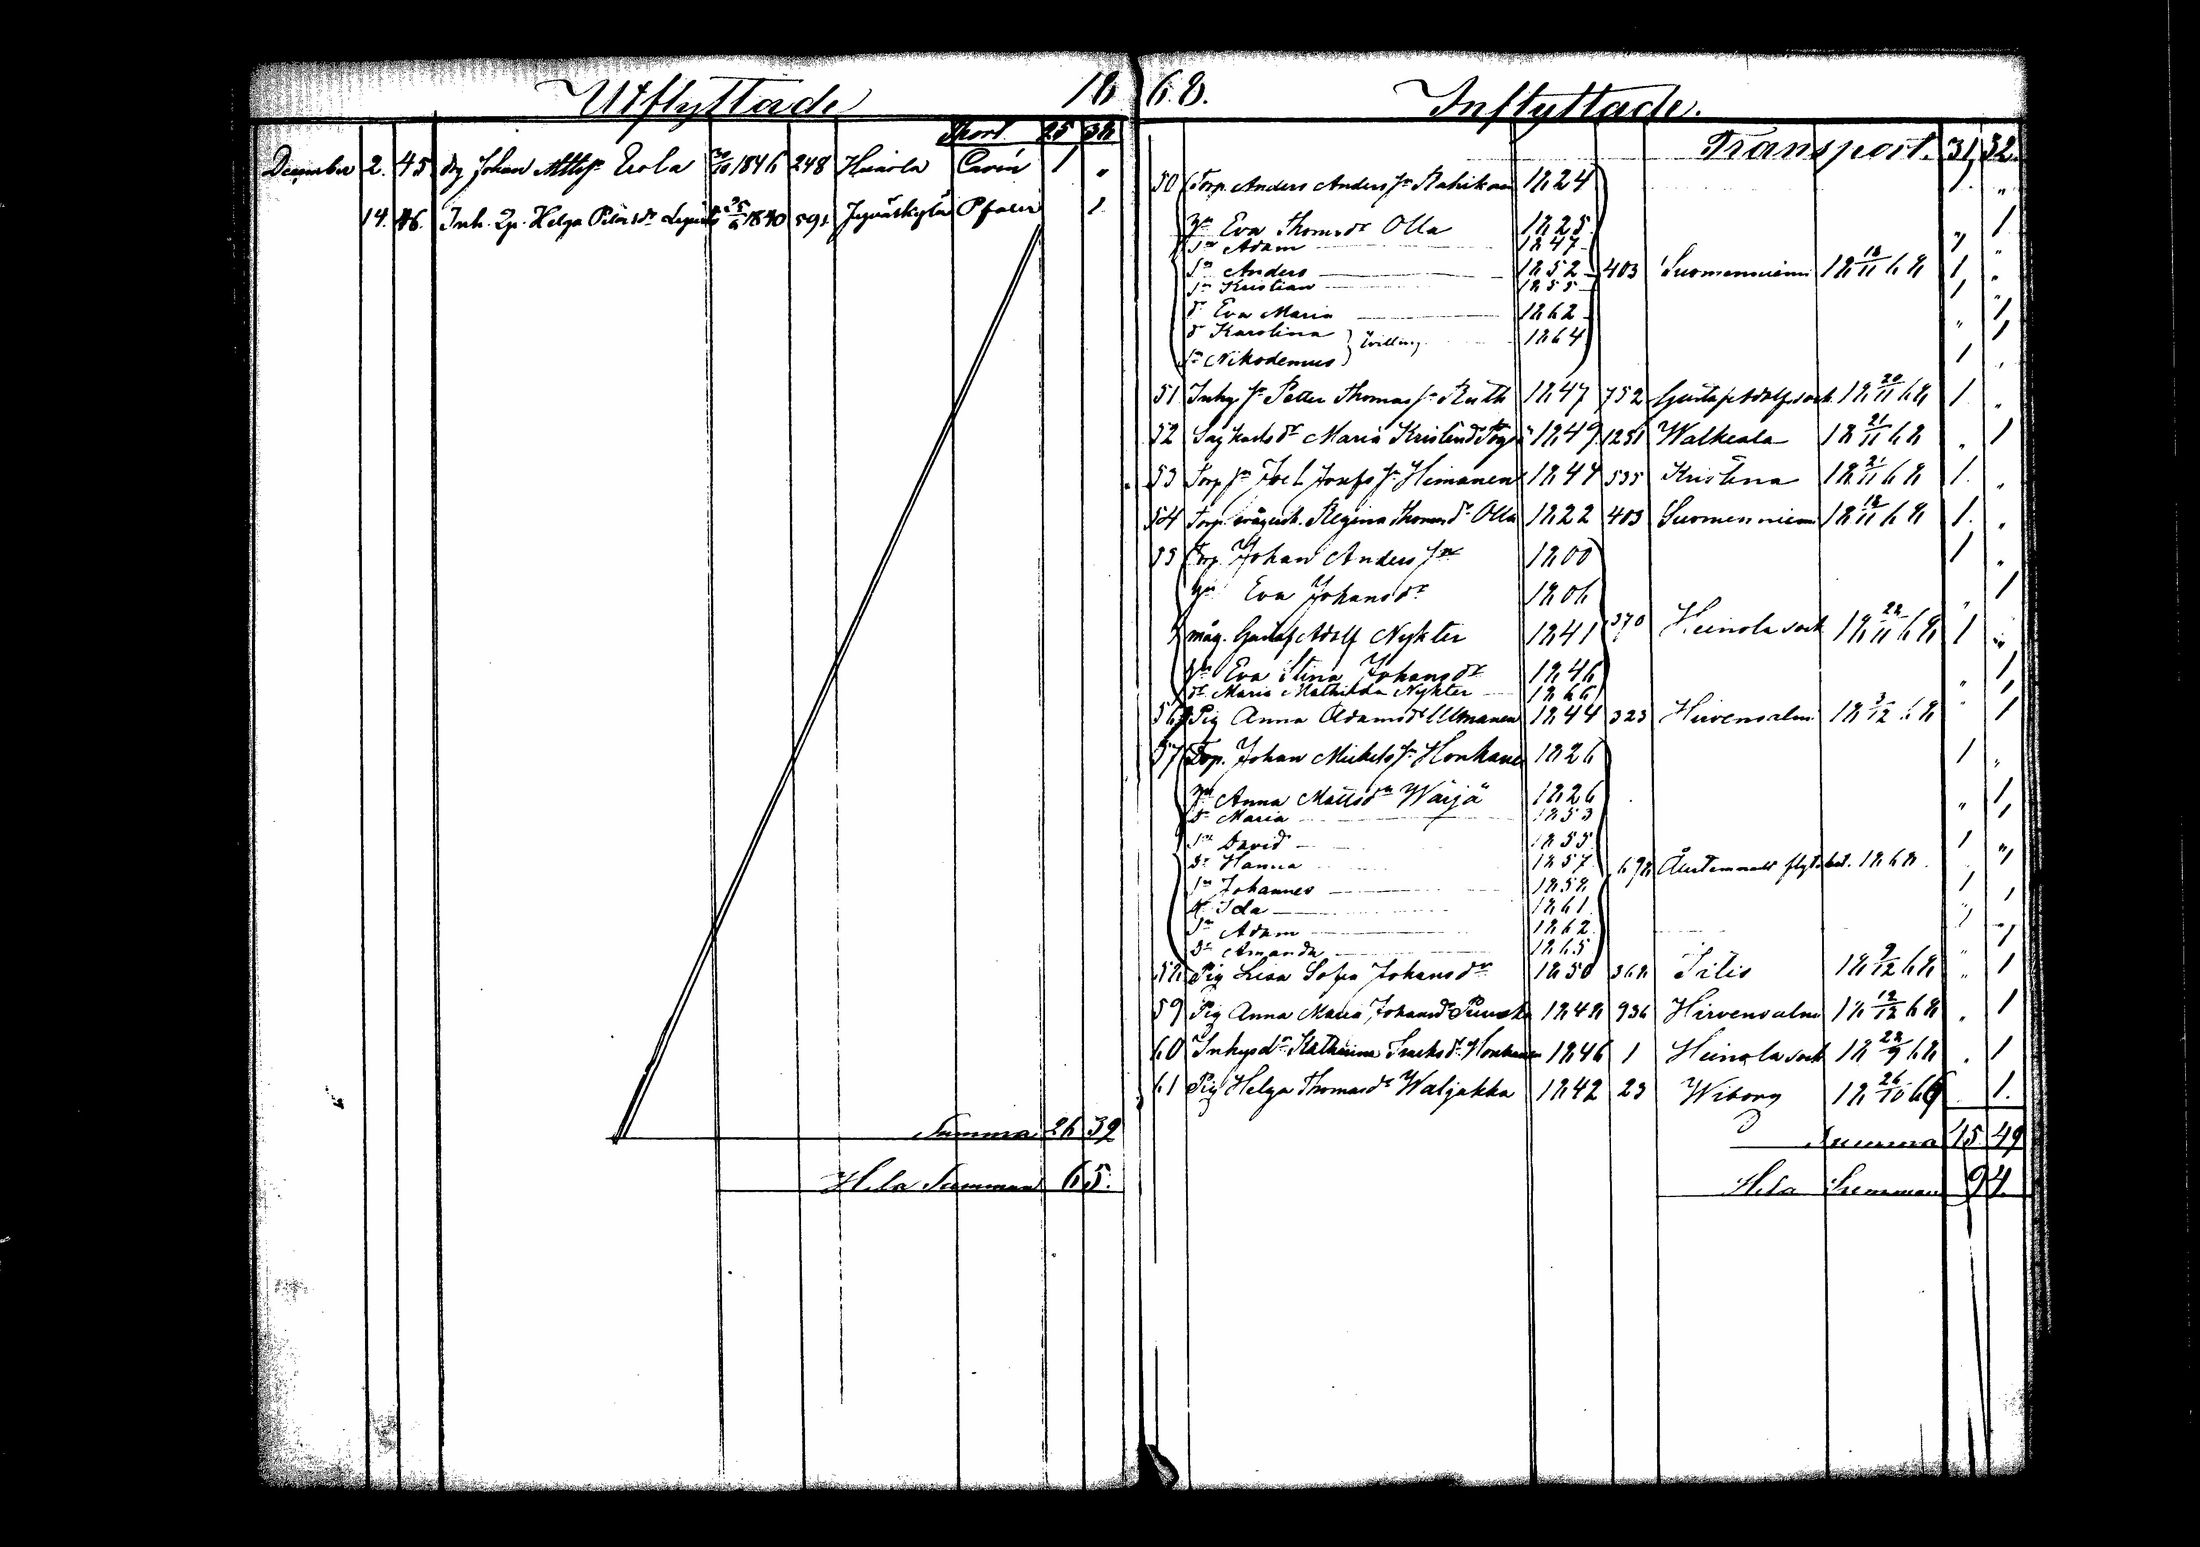 Utflyttade 18
Transp. 25 38
December 2. 45 drg Johan Matts Sn Erola 30/10 1846 248 Heinola Carin 1 "
14. 46. Inh. Helga Petersdr 25/6 1840 591 Jyväskylä 1
Summa 26 39
Hela Summan 65.
68. Inflyttade.
Transport. 31 32.
50 Torp. Anders Anders Sn Rahikain 1824 1 "
Hu Eva Thomasdr Olla 1825 " 1
Sn Adam 1847 1 "
Sn Anders 1852 403 Suomenniemi 18 18/11 68 1 "
Sn Kristian 1855 1 "
dr Eva Maria 1862 " 1
dr Karolina } tvilling 1864 " 1
Sn Nikodemus 1 "
51 Inhys Sn Petter Thomas Sn Ruth 1847 752 Gustaf Adolfs sock 18 20/11 68 1 "
52 Maria Kristina 1849 1251 Walkeala 18 21/11 68 " 1
53 Torp Sn Joel Josefs Sn Heimanen 1847 535 Kristina 18 21/11 68 1 "
54 Torp. Regina Thomasdr Olla 1822 403 Suomenniemi 18 18/11 68 1. "
55 Torp. Johan Anders Sn 1800 1 "
Hu Eva Johansdr 1806 " 1
måg. Gustaf Adolf Nykter 1841 370 Heinola sock 18 22/11 68 1 "
Hu Eva Stina Johansdr 1846 " 1
dr Maria Mathilda Nykter 1866 " 1
56 Pig Anna Adamsdr Ulmanen 1844 323 Hirvensalmi 18 3/12 68 " 1
57 Torp. Johan Mickels Sn Honkanen 1826 1 "
Hu Anna Mattsdr Warjä 1826 " 1
dr Maria 1853 " 1
Sn David 1855 1 "
dr Hanna 1857 698 flytt bet. 1868 " 1
Sn Johannes 1858 1 "
dr Ida 1861 " 1
Sn Adam 1862 1 "
dr Amanda 1865 " 1
58 Pig Lisa Sofia Johansdr 1850 368 Iitis 18 9/12 68 " 1
59 Pig Anna Maria Johansdr 1848 936 Hirvensalmi 18 12/12 68 " 1
60 Inhysdr Katharina Isaksdr Honkanen 1846 1 Heinola sock 18 22/9 68 " 1
61 Pig Helga Thomasdr Waljakka 1842 23 Wiborg 18 26/10 69 1.
Summa 45 49
Hela Summan 94.